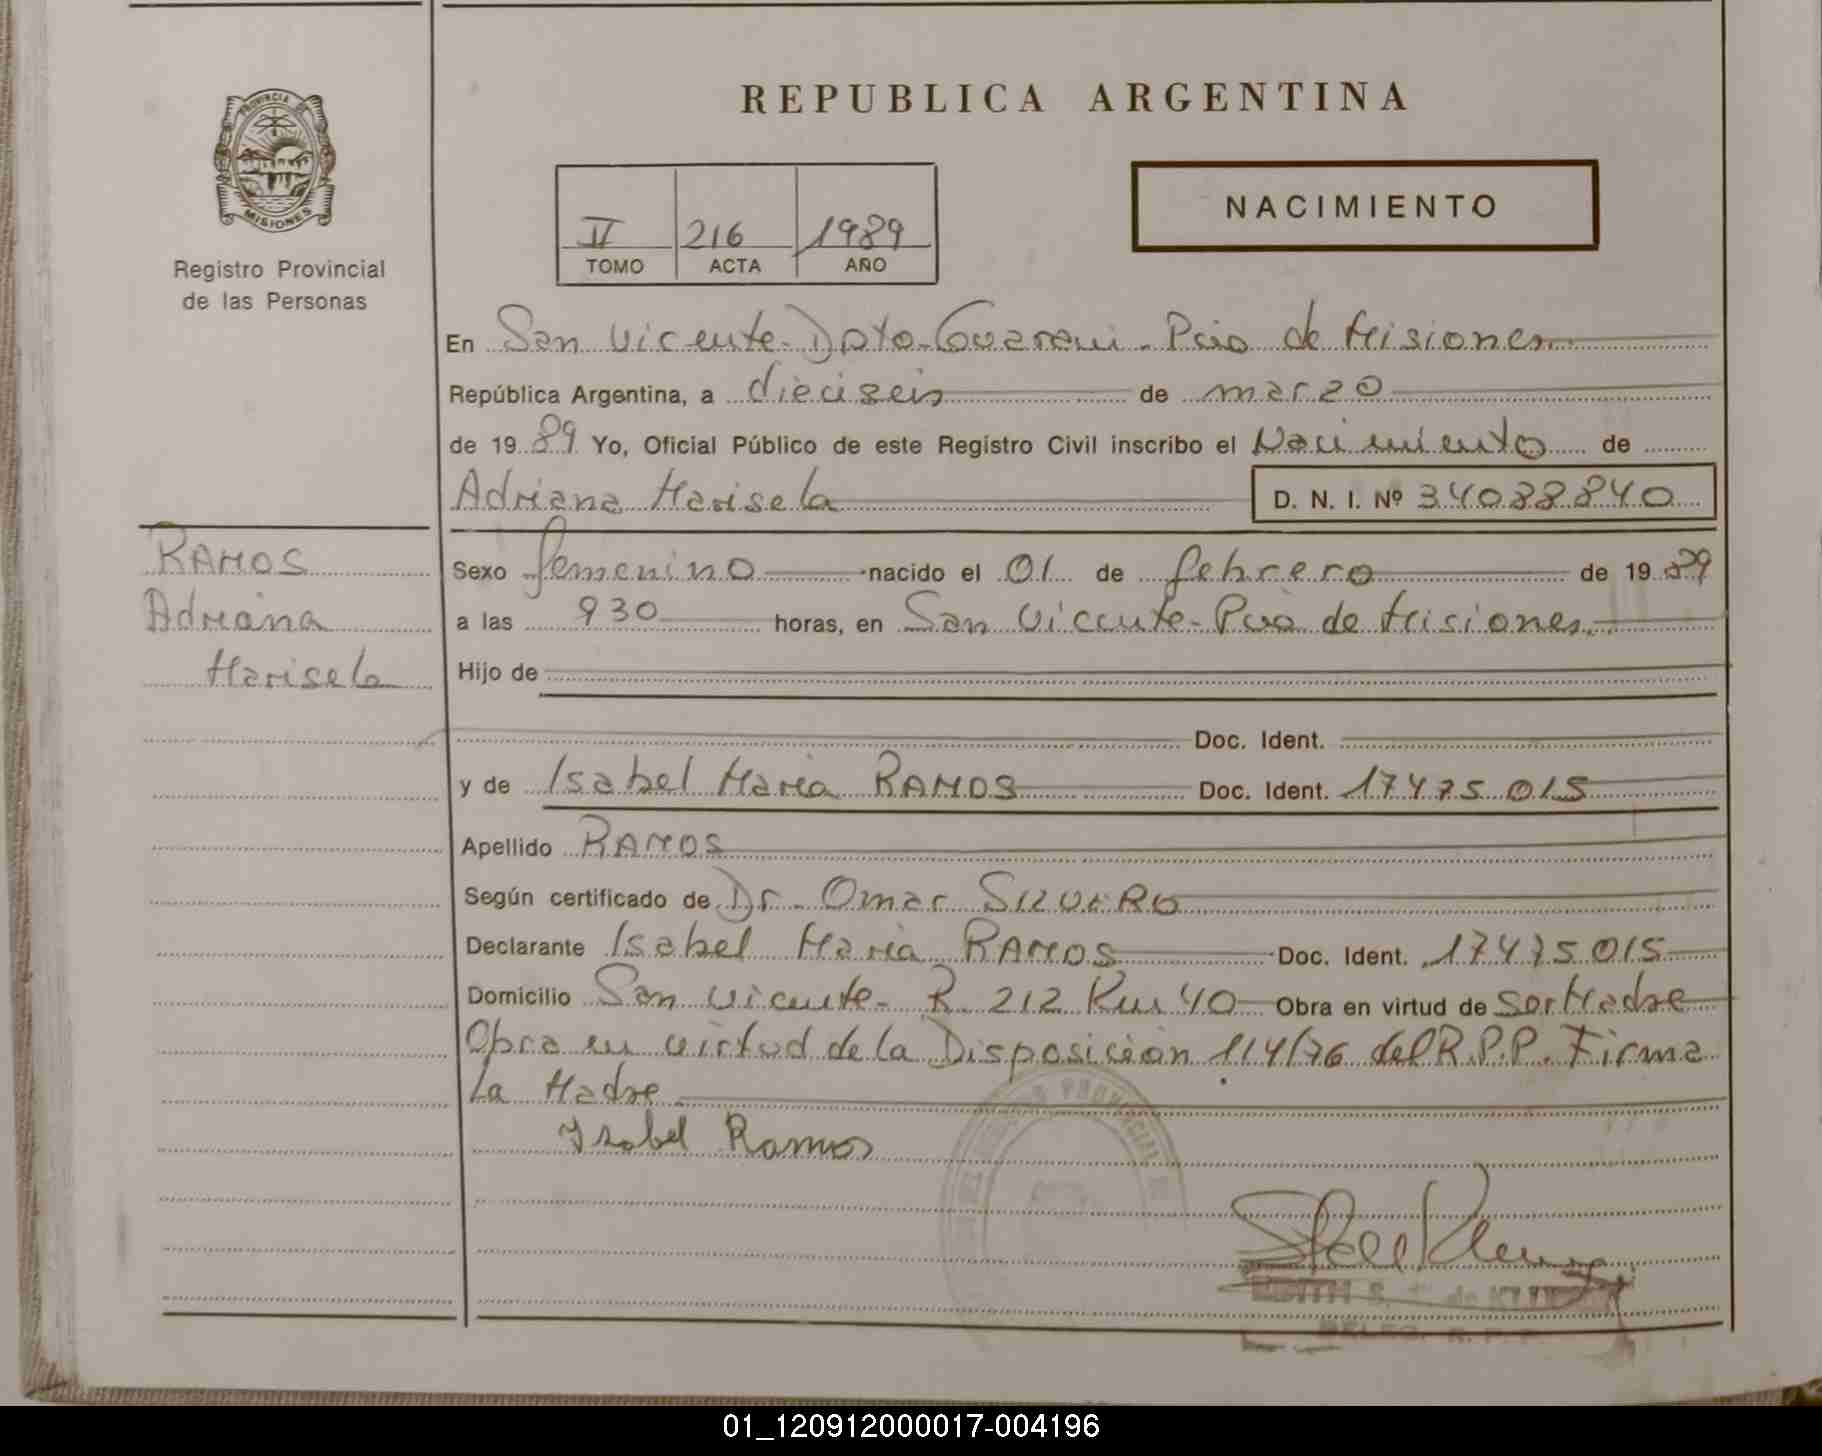 REPUBLICA ARGENTINA
PROVINCIA DE
MISIONES
Registro Provincial
de las Personas
II 216 1989
TOMO ACTA AÑO
NACIMIENTO
En San Vicente - Dpto. Guarani - Pcia de Misiones
República Argentina, a dieciseis de marzo
de 1989 Yo, Oficial Público de este Registro Civil inscribo el Nacimiento de
Adriana Marisela D. N. I. Nº 34088840
RAMOS
Adriana
Marisela
Sexo femenino nacido el 01 de febrero de 1989
a las 930 horas, en San Vicente - Pcia de Misiones
Hijo de
Doc. Ident.
y de Isabel Maria RAMOS Doc. Ident. 17475015
Apellido RAMOS
Según certificado de Dr. Omar SILVERO
Declarante Isabel Maria RAMOS Doc. Ident. 17475015
Domicilio San Vicente - R. 212 Km 40 Obra en virtud de ser Madre
Obra en virtud de la Disposición 114/76 del R.P.P. Firma
la Madre
Isabel Ramos
PROVINCIAL
DELEG. R. P. P.
01_120912000017-004196